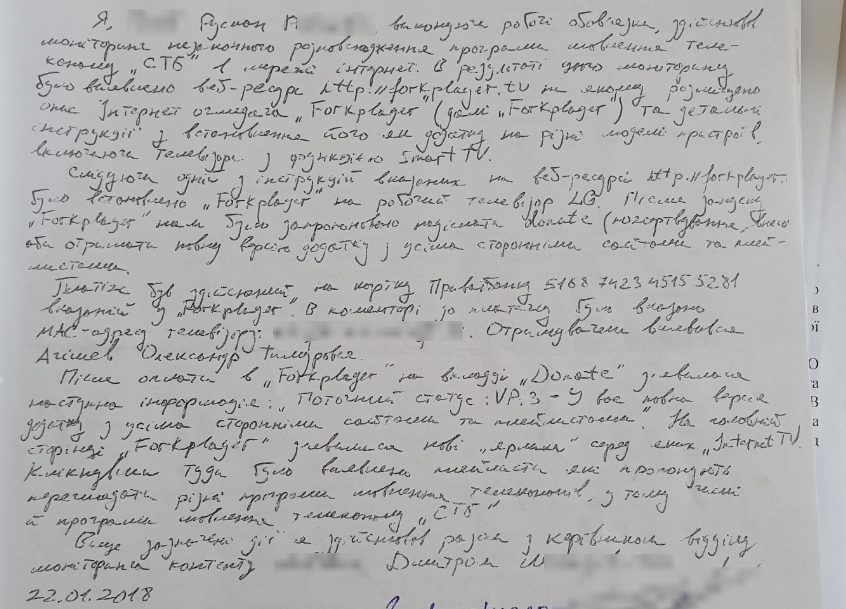 Я, Руслан Г виконуючи робочі обов'язки, здійснював
моніторинг незаконного розповсюдження програми мовлення теле-
каналу „СТБ" в мережі інтернет. В результаті цього моніторингу
було виявлено веб-ресурс http://forkplayer.tv на якому розміщено
опис Інтернет оглядача „ForkPlayer" (далі „ForkPlayer") та детальні
інструкції з встановлення його як додатку на різні моделі пристроїв,
включаючи телевізори з функцією Smart TV.
Слідуючи одній з інструкцій вказаних на веб-ресурсі http://forkplayer.
було встановлено „ForkPlayer" на робочий телевізор LG. Після запуску
„ForkPlayer" нам було запропоновано надіслати donate (пожертвування,
аби отримати повну версію додатку з усіма сторонніми сайтами та плей-
листами.
Платіж був здійснений на картку Приватбанку 5168 7423 4515 5281
вказаній у „ForkPlayer". В коментарі до платежу було вказано
MAC-адрес телевізору: . Отримувачем виявився
Агішев Олександр Тимурович.
Після оплати в „ForkPlayer" на вкладці „Donate" з'явилася
наступна інформація: „Поточний статус: VP.3 - У вас повна версія
додатку з усіма сторонніми сайтами та плейлистами". На головній
сторінці „ForkPlayer" з'явилися нові „ярлики" серед яких „Internet TV.
Клікнувши туди було виявлено плейлисти які пропонують
переглядати різні програми мовлення телеканалів, у тому числі
й програми мовлення телеканалу „СТБ"
Вище зазначені дії я здійснював разом з керівником відділу
моніторингу контенту Дмитром
22.01.2018